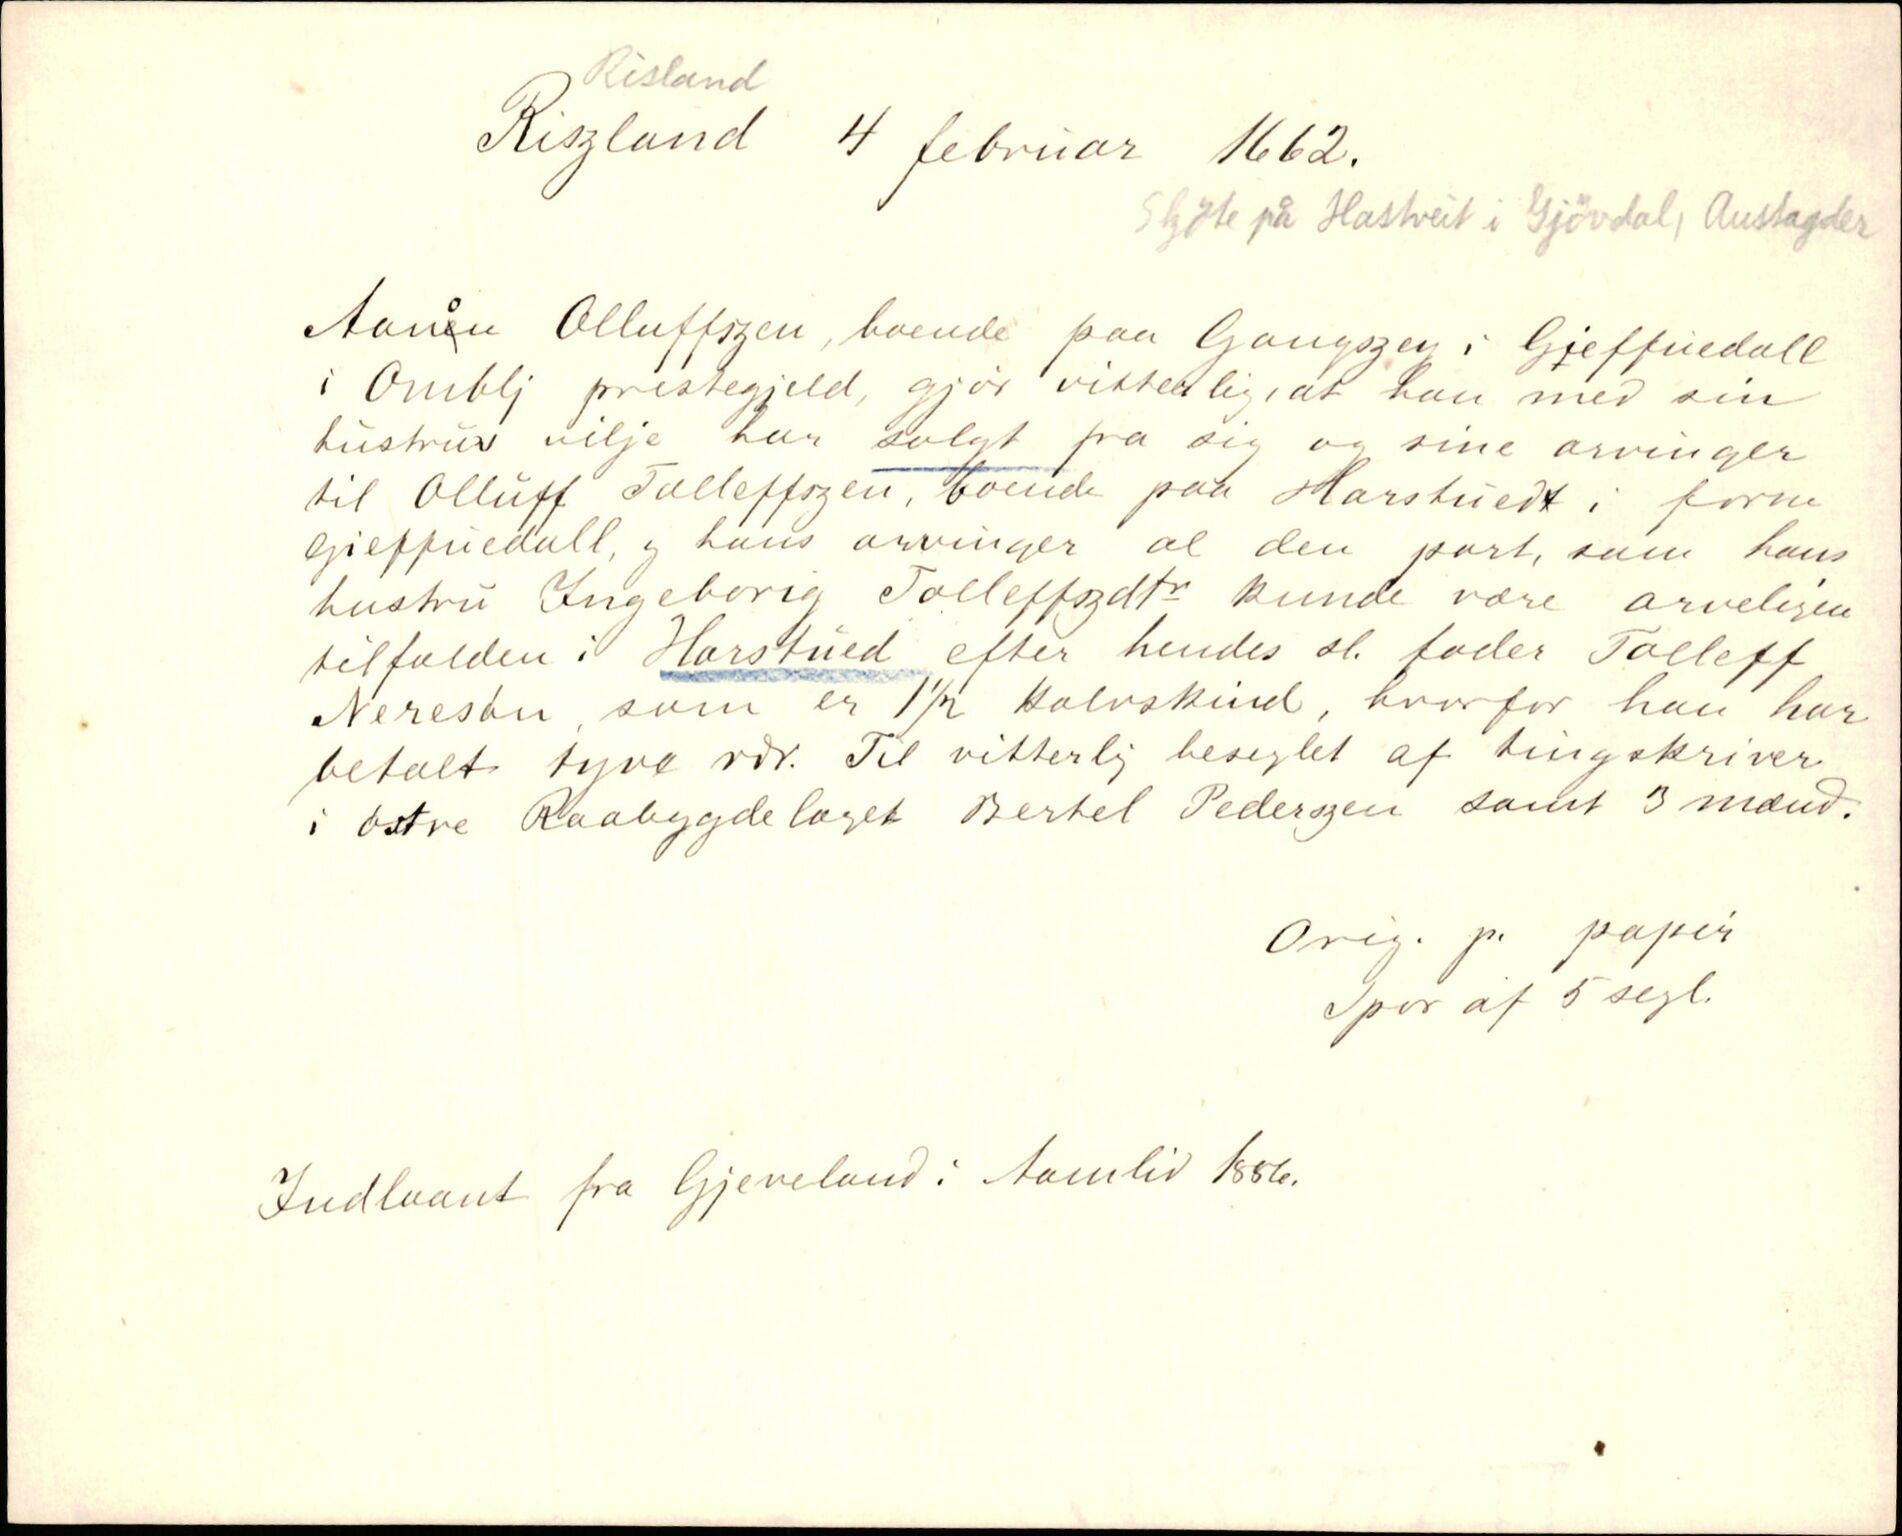 Risland
Riszland 4 februar 1662.
Skjöte på Hastveit i Gjövdal, Austagder
Aanen Olluffszen, boende paa Gangszey i Gjeffuedall
i Omblj prestegjeld, gjör vitterlig, at han med sin
hustrus vilje har solgt fra sig og sine arvinger
til Olluff Tolleffszen, boende paa Harstuedt i forne
Gieffuedall, og hans arvinger al den part, som hans
hustru Ingeborig Tolleffszdtr kunde være arveligen
tilfalden i Harstued efter hendes sl. fader Tolleff
Neresön, som er 1 1/2 kalvskind, hvorfor han har
betalt tyve rdr. Til vitterlig beseglet af tingskriver
i östre Raabygdelaget Bertel Pederszen samt 3 mænd.
Orig. p. papir
Spor af 5 segl.
Indlaant fra Gjeveland i Aamlid 1886.